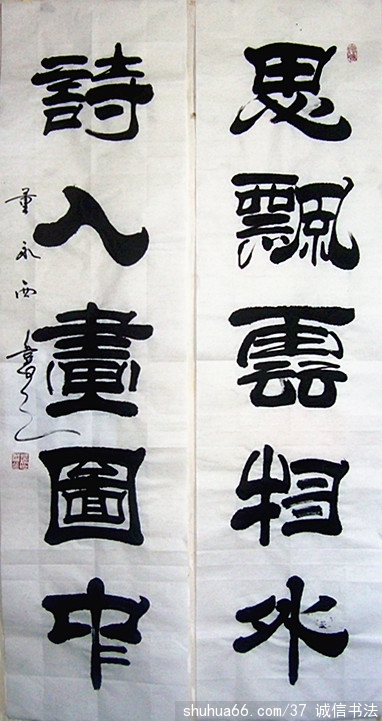 思飄雲物外
詩入畫圖中
董永西
書之
shuhua66.com/37 诚信书法